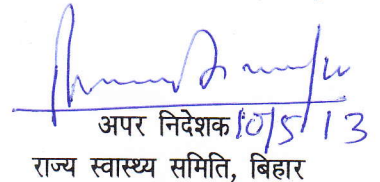 अपर निदेशक 10/5/13
राज्य स्वास्थ्य समिति, बिहार